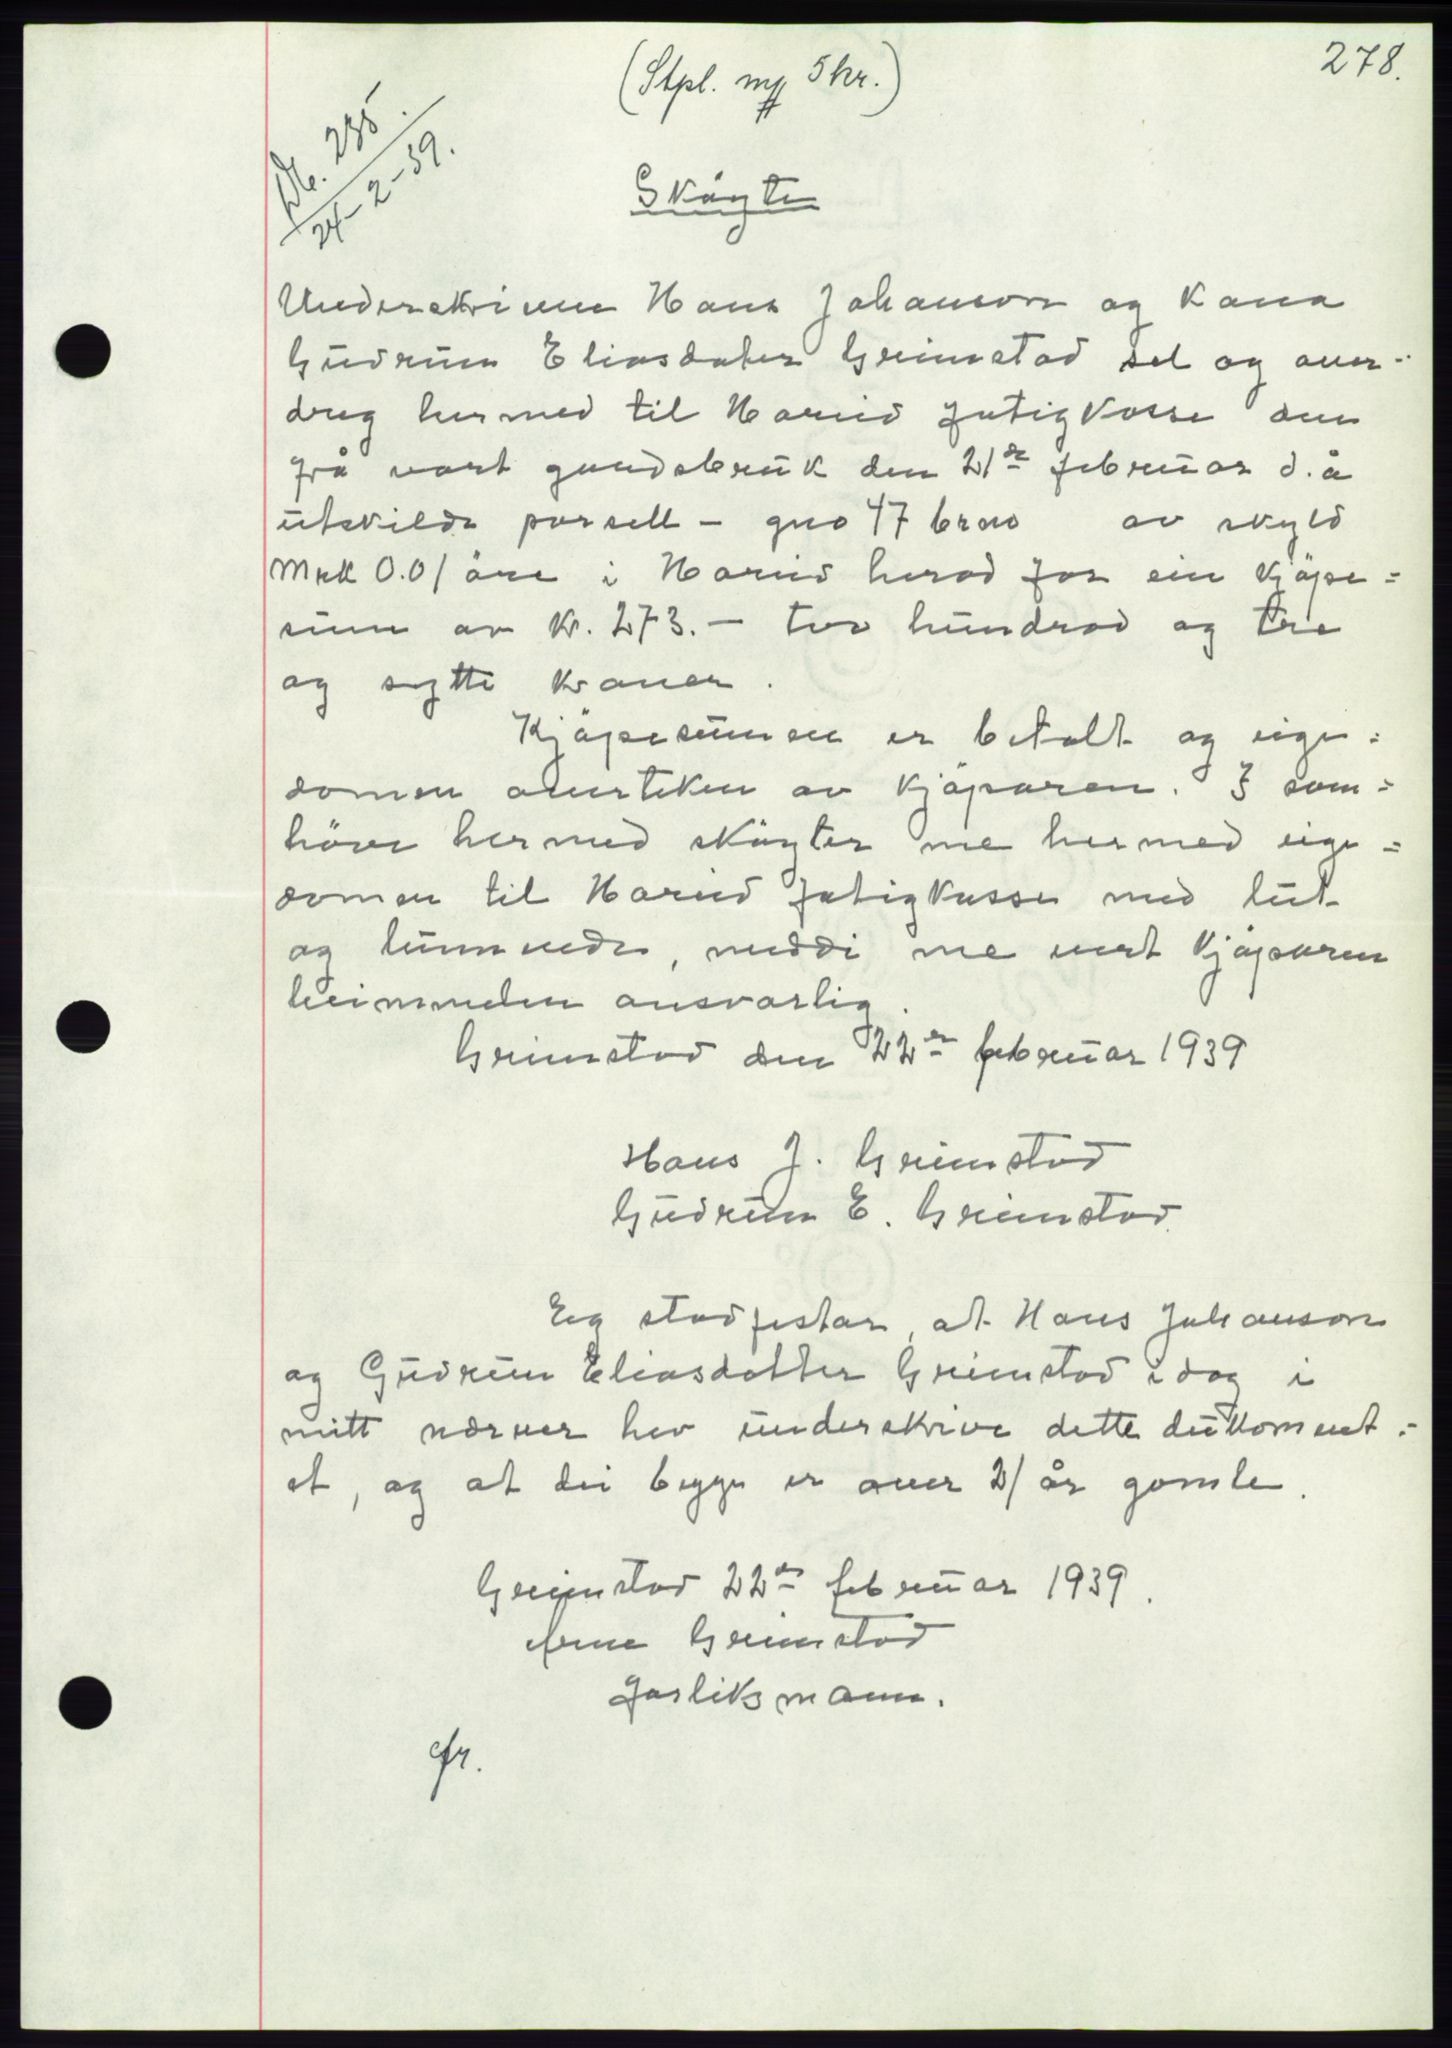 278.
(Stpl. m/ 5 kr.)
No. 235.
24-2-39.
Skøyte
Underskrivne Hans Johanson og Kona
Gudrun Eliasdater Grimstad sel og over-
dreg hermed til Hareid fatigkasse den
frå vart gardsbruk den 21de februar d.å
utskilde parsell - gno 47 brno    av skyld
Mrk 0.01 øre i Hareid herad for ein kjøpe=
sum av kr. 273.- tvo hundrad og tre
og sytti kroner.
Kjøpesummen er betalt og eige=
domen overteken av kjøparen. I sam=
høve hermed skøyter me hermed eige=
domen til Hareid fatigkasse med lut
og lunnende, meddi me vert kjøparen
heimmelen ansvarlig.
Grimstad den 22de februar 1939
Hans J. Grimstad
Gudrun E. Grimstad.
Eg stadfestar, at Hans Johanson
og Gudrun Eliasdotter Grimstad idag i
mitt nærver hev underskrive dette dukoment-
et, og at dei begge er over 21 år gamle.
Grimstad 22de februar 1939.
Arne Grimstad
forliksmann.